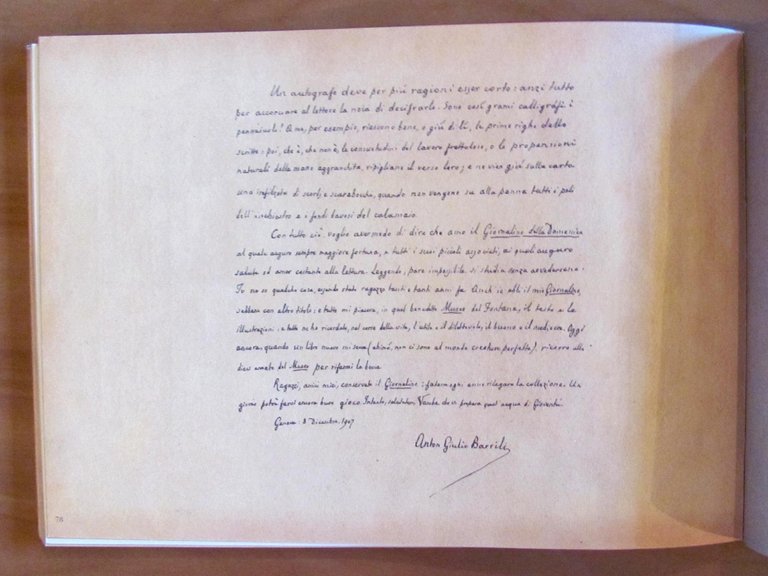 Un autografo deve per più ragioni esser corto: anzi tutto
per accorciare al lettore la noia di decifrarlo. Sono così grami calligrafi i
pennaiuoli! A me, per esempio, riescono bene, o giù di lì, le prime righe dello
scritto: poi, che è, che non è, le consuetudini del lavoro frettoloso, o le propensioni
naturali della mano aggranchita, ripigliano il verso loro; e ne vien giù sulla carta
una infilzata di sgorbi e scarabocchi, quando non vengono su alla penna tutti i peli
dell'inchiostro e i fondi del calamaio.
Con tutto ciò, voglio aver modo di dire che amo il Giornalino della Domenica
al quale auguro sempre maggiore fortuna, e tutti i suoi piccoli associati, ai quali auguro
salute ed amor costante alla lettura. Leggendo, pare impossibile, si studia senza avvedersene.
Io ne so qualche cosa, essendo stato ragazzo tanti e tanti anni fa. Anch'io ebbi il mio Giornalino,
sebbene con altro titolo: e tutto mi piaceva, in quel benedetto Museo del Fontana, il testo e le
illustrazioni: e tutto ne ho ricordato, nel corso della vita, l'utile e il dilettevole, il buono e il mediocre. Oggi
ancora, quando un libro nuovo mi secca (ahimè, non ci sono al mondo creature perfette), ricorro alle
dieci annate del Museo per rifarmi la bocca.
Ragazzi, amici miei, conservate il Giornalino: fatevene ogni anno rilegare la collezione. Un
giorno potrà farvi ancora buon gioco. Intanto, salutatemi Vamba che vi prepara quell'acqua di gioventù.
Genova: 8 Dicembre, 1907
Anton Giulio Barrili
78